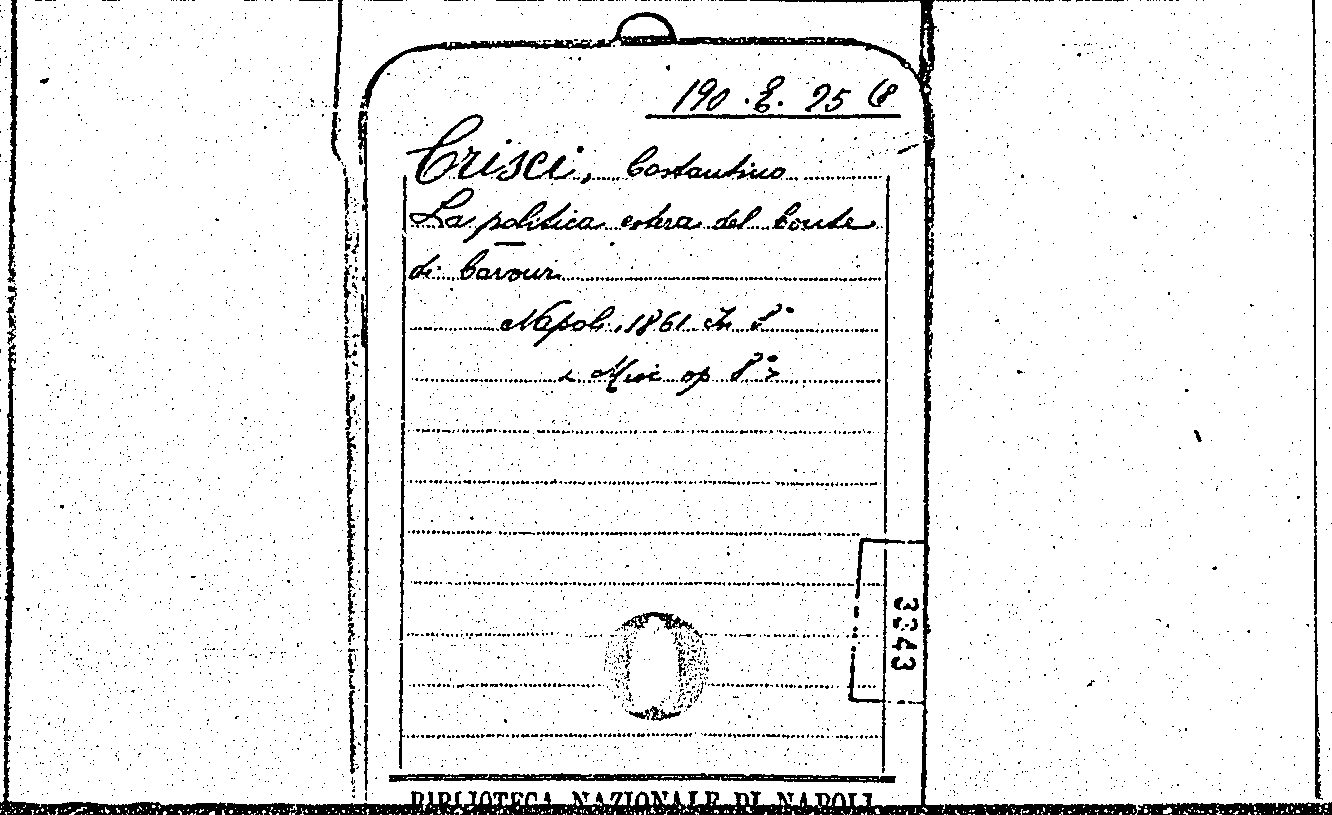 190. E. 25 6
Crisci, Costantino
La politica estera del Conte
di Cavour
Napoli, 1861 In 8°
< Misc op 8° >
3343
BIBLIOTECA NAZIONALE DI NAPOLI